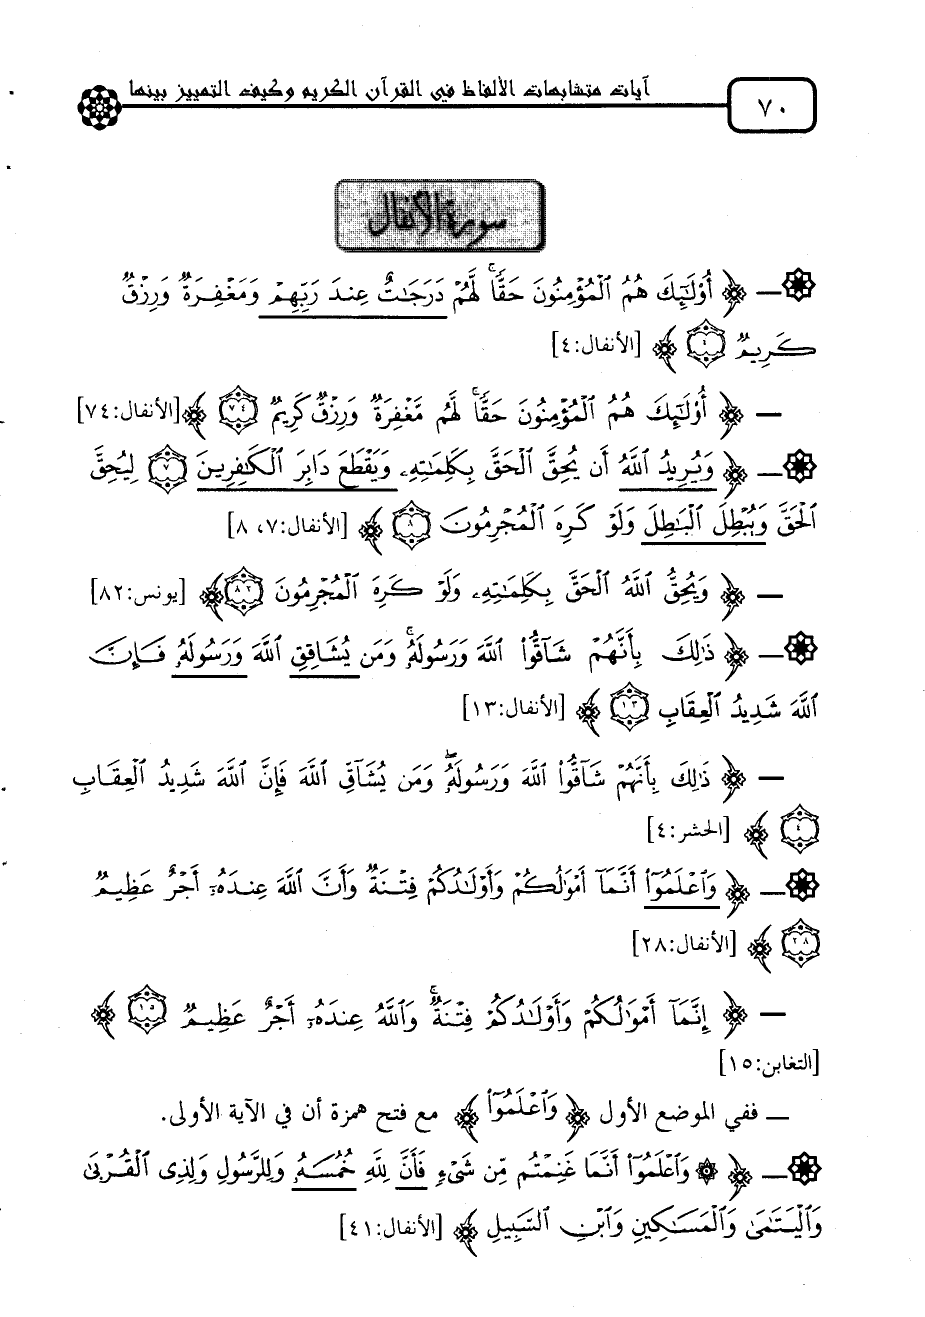 آيات متشابهات الألفاظ في القرآن الكريم وكيف التمييز بينها
٧٠
سورة الأنفال
ـ ﴿ أُوْلَٰٓئِكَ هُمُ ٱلْمُؤْمِنُونَ حَقًّا ۚ لَّهُمْ دَرَجَٰتٌ عِندَ رَبِّهِمْ وَمَغْفِرَةٌ وَرِزْقٌ
كَرِيمٌ ٤ ﴾ [الأنفال:٤]
ـ ﴿ أُوْلَٰٓئِكَ هُمُ ٱلْمُؤْمِنُونَ حَقًّا ۚ لَّهُم مَّغْفِرَةٌ وَرِزْقٌ كَرِيمٌ ٧٤ ﴾ [الأنفال:٧٤]
ـ ﴿ وَيُرِيدُ ٱللَّهُ أَن يُحِقَّ ٱلْحَقَّ بِكَلِمَٰتِهِۦ وَيَقْطَعَ دَابِرَ ٱلْكَٰفِرِينَ ٧ لِيُحِقَّ
ٱلْحَقَّ وَيُبْطِلَ ٱلْبَٰطِلَ وَلَوْ كَرِهَ ٱلْمُجْرِمُونَ ٨ ﴾ [الأنفال:٧، ٨]
ـ ﴿ وَيُحِقُّ ٱللَّهُ ٱلْحَقَّ بِكَلِمَٰتِهِۦ وَلَوْ كَرِهَ ٱلْمُجْرِمُونَ ٨٢ ﴾ [يونس:٨٢]
ـ ﴿ ذَٰلِكَ بِأَنَّهُمْ شَآقُّوا۟ ٱللَّهَ وَرَسُولَهُۥ ۚ وَمَن يُشَاقِقِ ٱللَّهَ وَرَسُولَهُۥ فَإِنَّ
ٱللَّهَ شَدِيدُ ٱلْعِقَابِ ١٣ ﴾ [الأنفال:١٣]
ـ ﴿ ذَٰلِكَ بِأَنَّهُمْ شَآقُّوا۟ ٱللَّهَ وَرَسُولَهُۥ ۖ وَمَن يُشَآقِّ ٱللَّهَ فَإِنَّ ٱللَّهَ شَدِيدُ ٱلْعِقَابِ
٤ ﴾ [الحشر:٤]
ـ ﴿ وَٱعْلَمُوٓا۟ أَنَّمَآ أَمْوَٰلُكُمْ وَأَوْلَٰدُكُمْ فِتْنَةٌ وَأَنَّ ٱللَّهَ عِندَهُۥٓ أَجْرٌ عَظِيمٌ
٢٨ ﴾ [الأنفال:٢٨]
ـ ﴿ إِنَّمَآ أَمْوَٰلُكُمْ وَأَوْلَٰدُكُمْ فِتْنَةٌ ۚ وَٱللَّهُ عِندَهُۥٓ أَجْرٌ عَظِيمٌ ١٥ ﴾
[التغابن:١٥]
ـ ففي الموضع الأول ﴿ وَٱعْلَمُوٓا۟ ﴾ مع فتح همزة أن في الآية الأولى.
ـ ﴿ ۞ وَٱعْلَمُوٓا۟ أَنَّمَا غَنِمْتُم مِّن شَىْءٍ فَأَنَّ لِلَّهِ خُمُسَهُۥ وَلِلرَّسُولِ وَلِذِى ٱلْقُرْبَىٰ
وَٱلْيَتَٰمَىٰ وَٱلْمَسَٰكِينِ وَٱبْنِ ٱلسَّبِيلِ ﴾ [الأنفال:٤١]